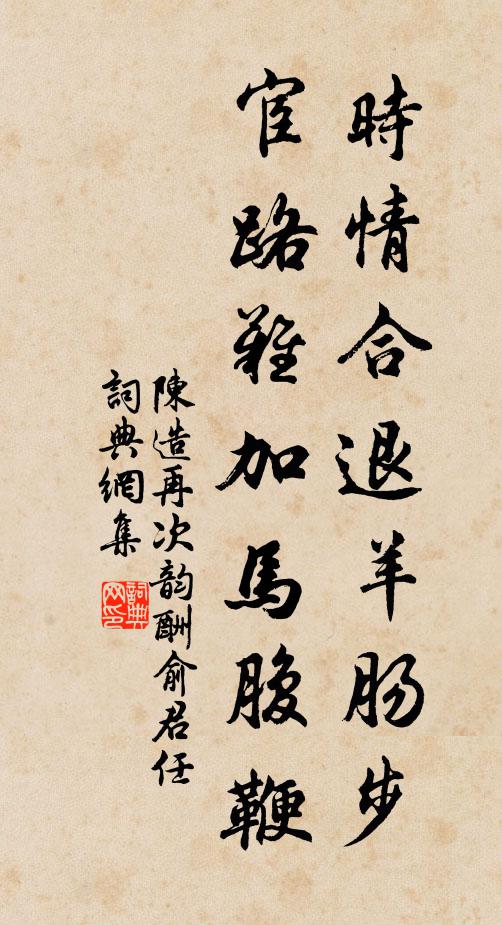 時情合退羊腸步
宦路難加馬腹鞭
陳造再次韵酬俞君任
詞典網集
詞典
网印